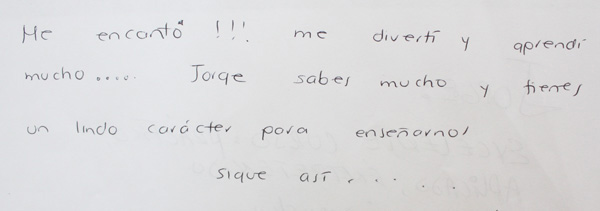 Me encantó !!! me divertí y aprendí
mucho..... Jorge sabes mucho y tienes
un lindo carácter para enseñarnos
sigue así . . . . .